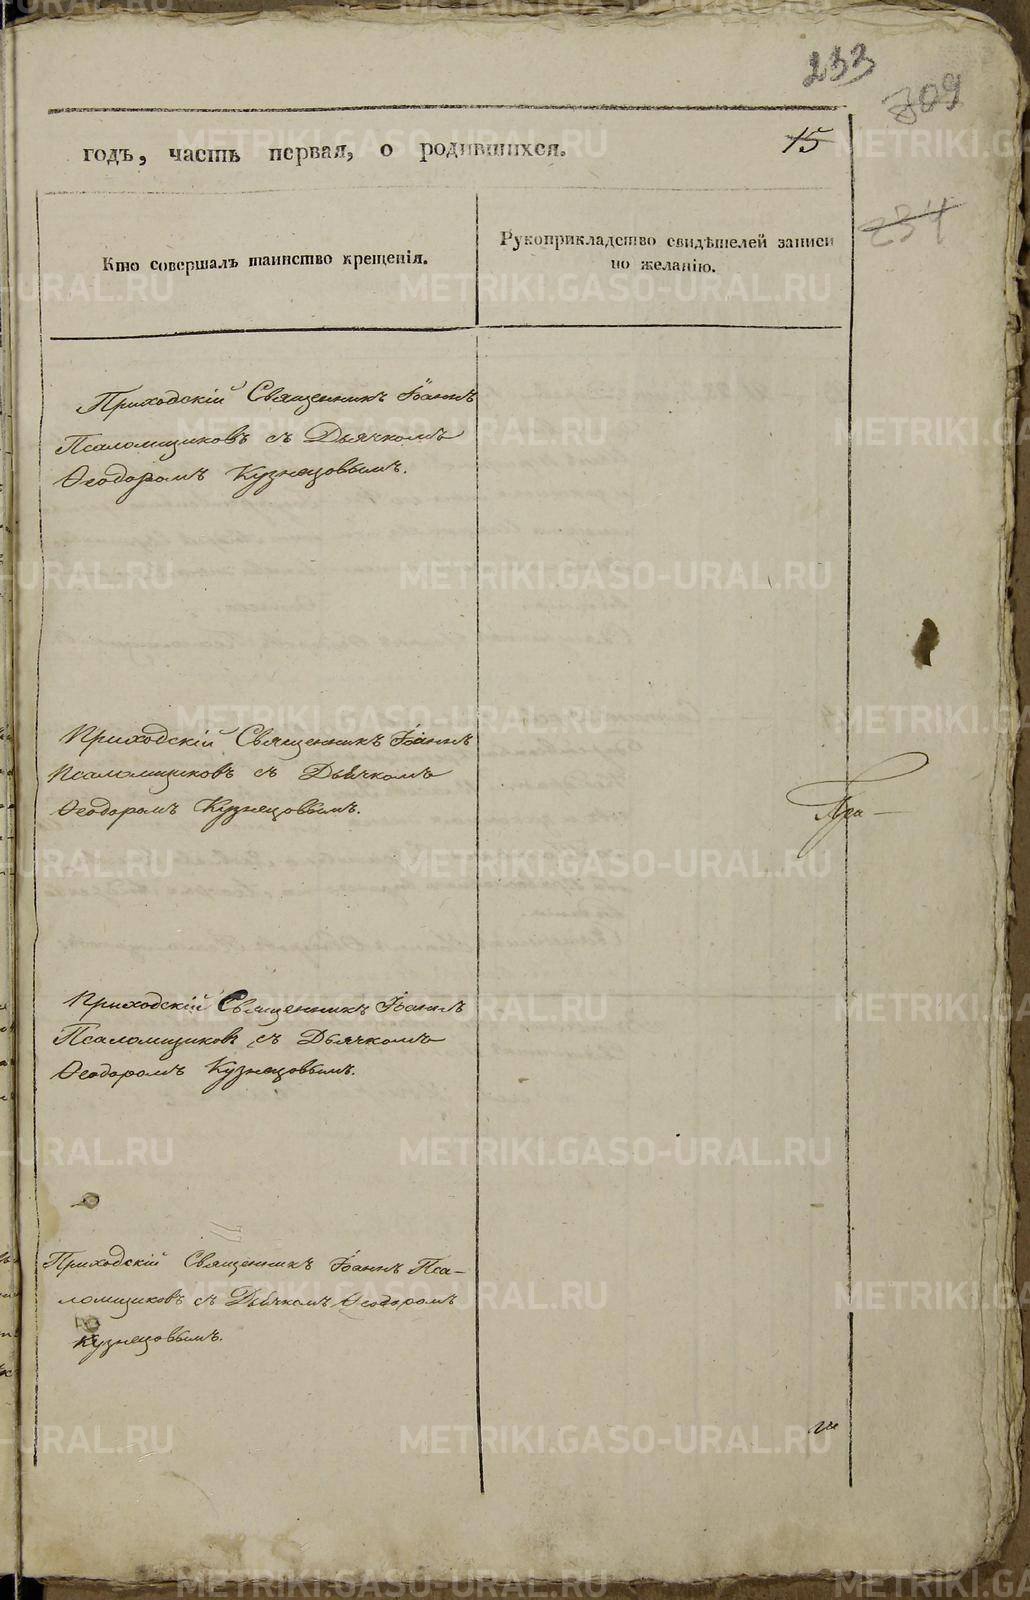 233
309
годъ, часть первая, о родившихся.
15
234
Кто совершалъ таинство крещенія.
Рукоприкладство свидѣтелей записи
по желанію.
Приходскій Священникъ Іоаннъ
Псаломщиковъ съ Дьячкомъ
Ѳеодоромъ Кузнецовымъ.
Приходскій Священникъ Іоаннъ
Псаломщиковъ съ Дьячкомъ
Ѳеодоромъ Кузнецовымъ.
При-
Приходскій Священникъ Іоаннъ
Псаломщиковъ съ Дьячкомъ
Ѳеодоромъ Кузнецовымъ.
Приходскій Священникъ Іоаннъ Пса-
ломщиковъ съ Дьячкомъ Ѳеодоромъ
Кузнецовымъ.
METRIKI.GASO-URAL.RU